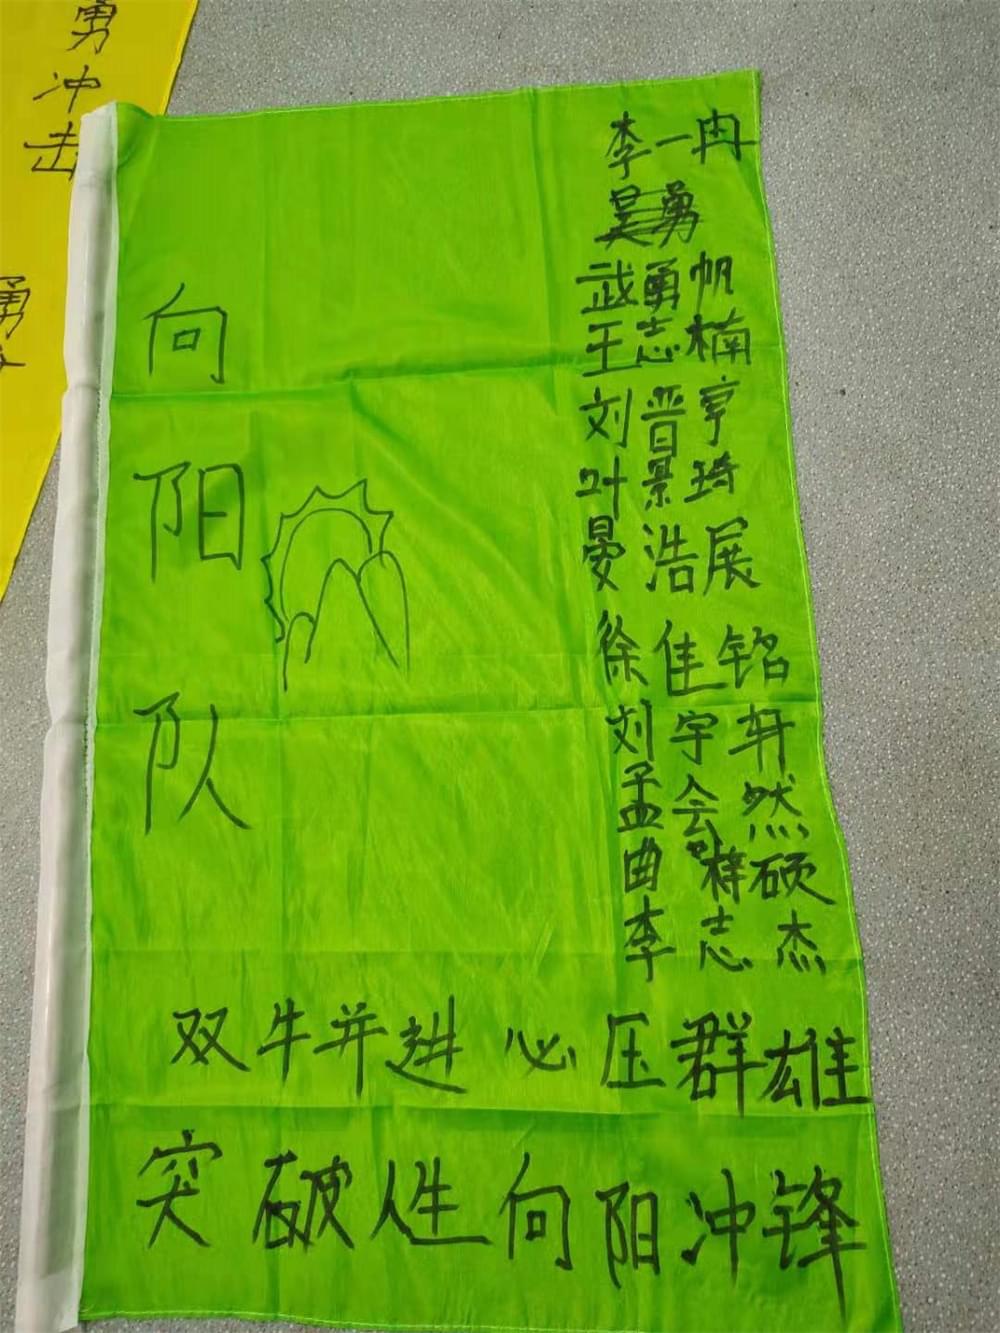 勇
冲
击
勇
向
阳
队
李一冉
武勇帆
王志楠
刘晋亨
叶景琦
晏浩展
徐佳铭
刘宇轩
孟会然
曲梓硕
李志杰
双牛并进 必压群雄
突破人生向阳冲锋